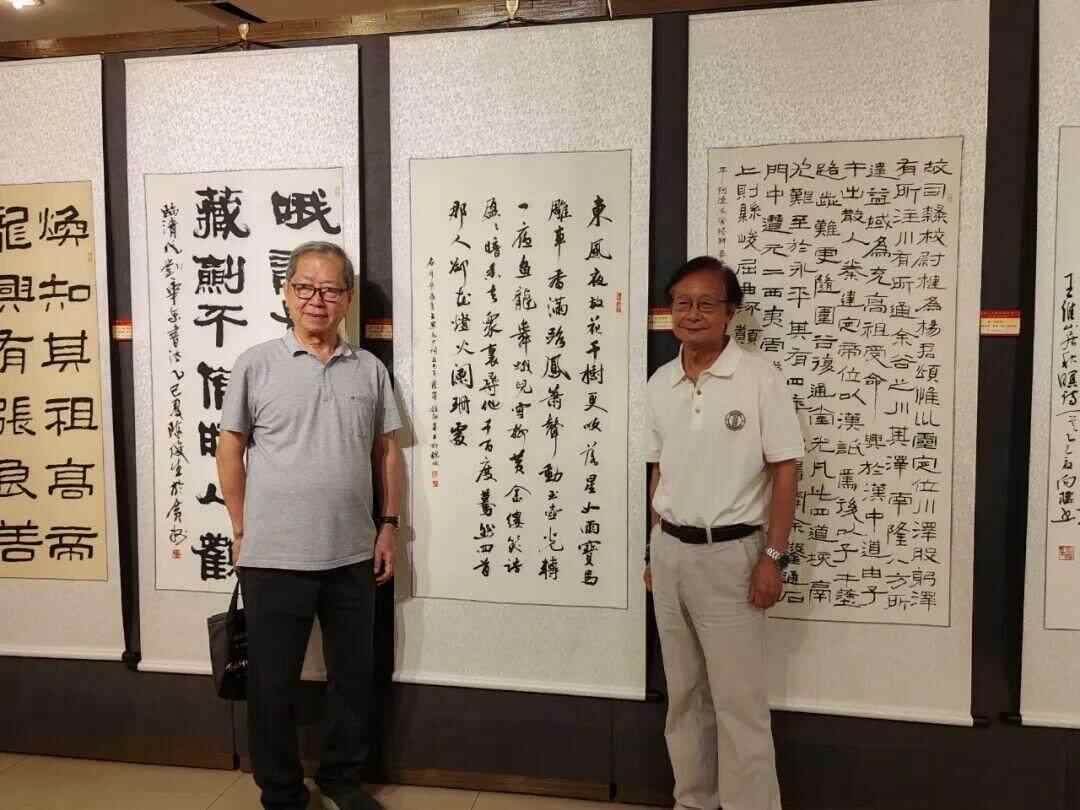 煥知其祖高帝
龍興有張良善
哦詩
藏劍不借時人觀
臨清代劉華東書法乙巳夏陳俊生於
東風夜放花千樹更吹落星如雨寶馬
雕車香滿路鳳簫聲動玉壺光轉
一夜魚龍舞蛾兒雪柳黃金縷笑語
盈盈暗香去眾裏尋他千百度驀然回首
那人卻在燈火闌珊處
故司隸校尉楗為楊君頌惟以靈定位川澤股躬澤
有所注川有所通余谷之川其澤南隆八方所
達益域為充高祖受命興於漢中道由子
午出散入秦建定帝位以漢詆焉後以子午塗
路歰難更隨圍谷復通堂光凡此四道垓鬲
於艱至於永平其有四
門中遭元二西夷虐
上則縣峻屈曲流顛
王維山居秋暝詩